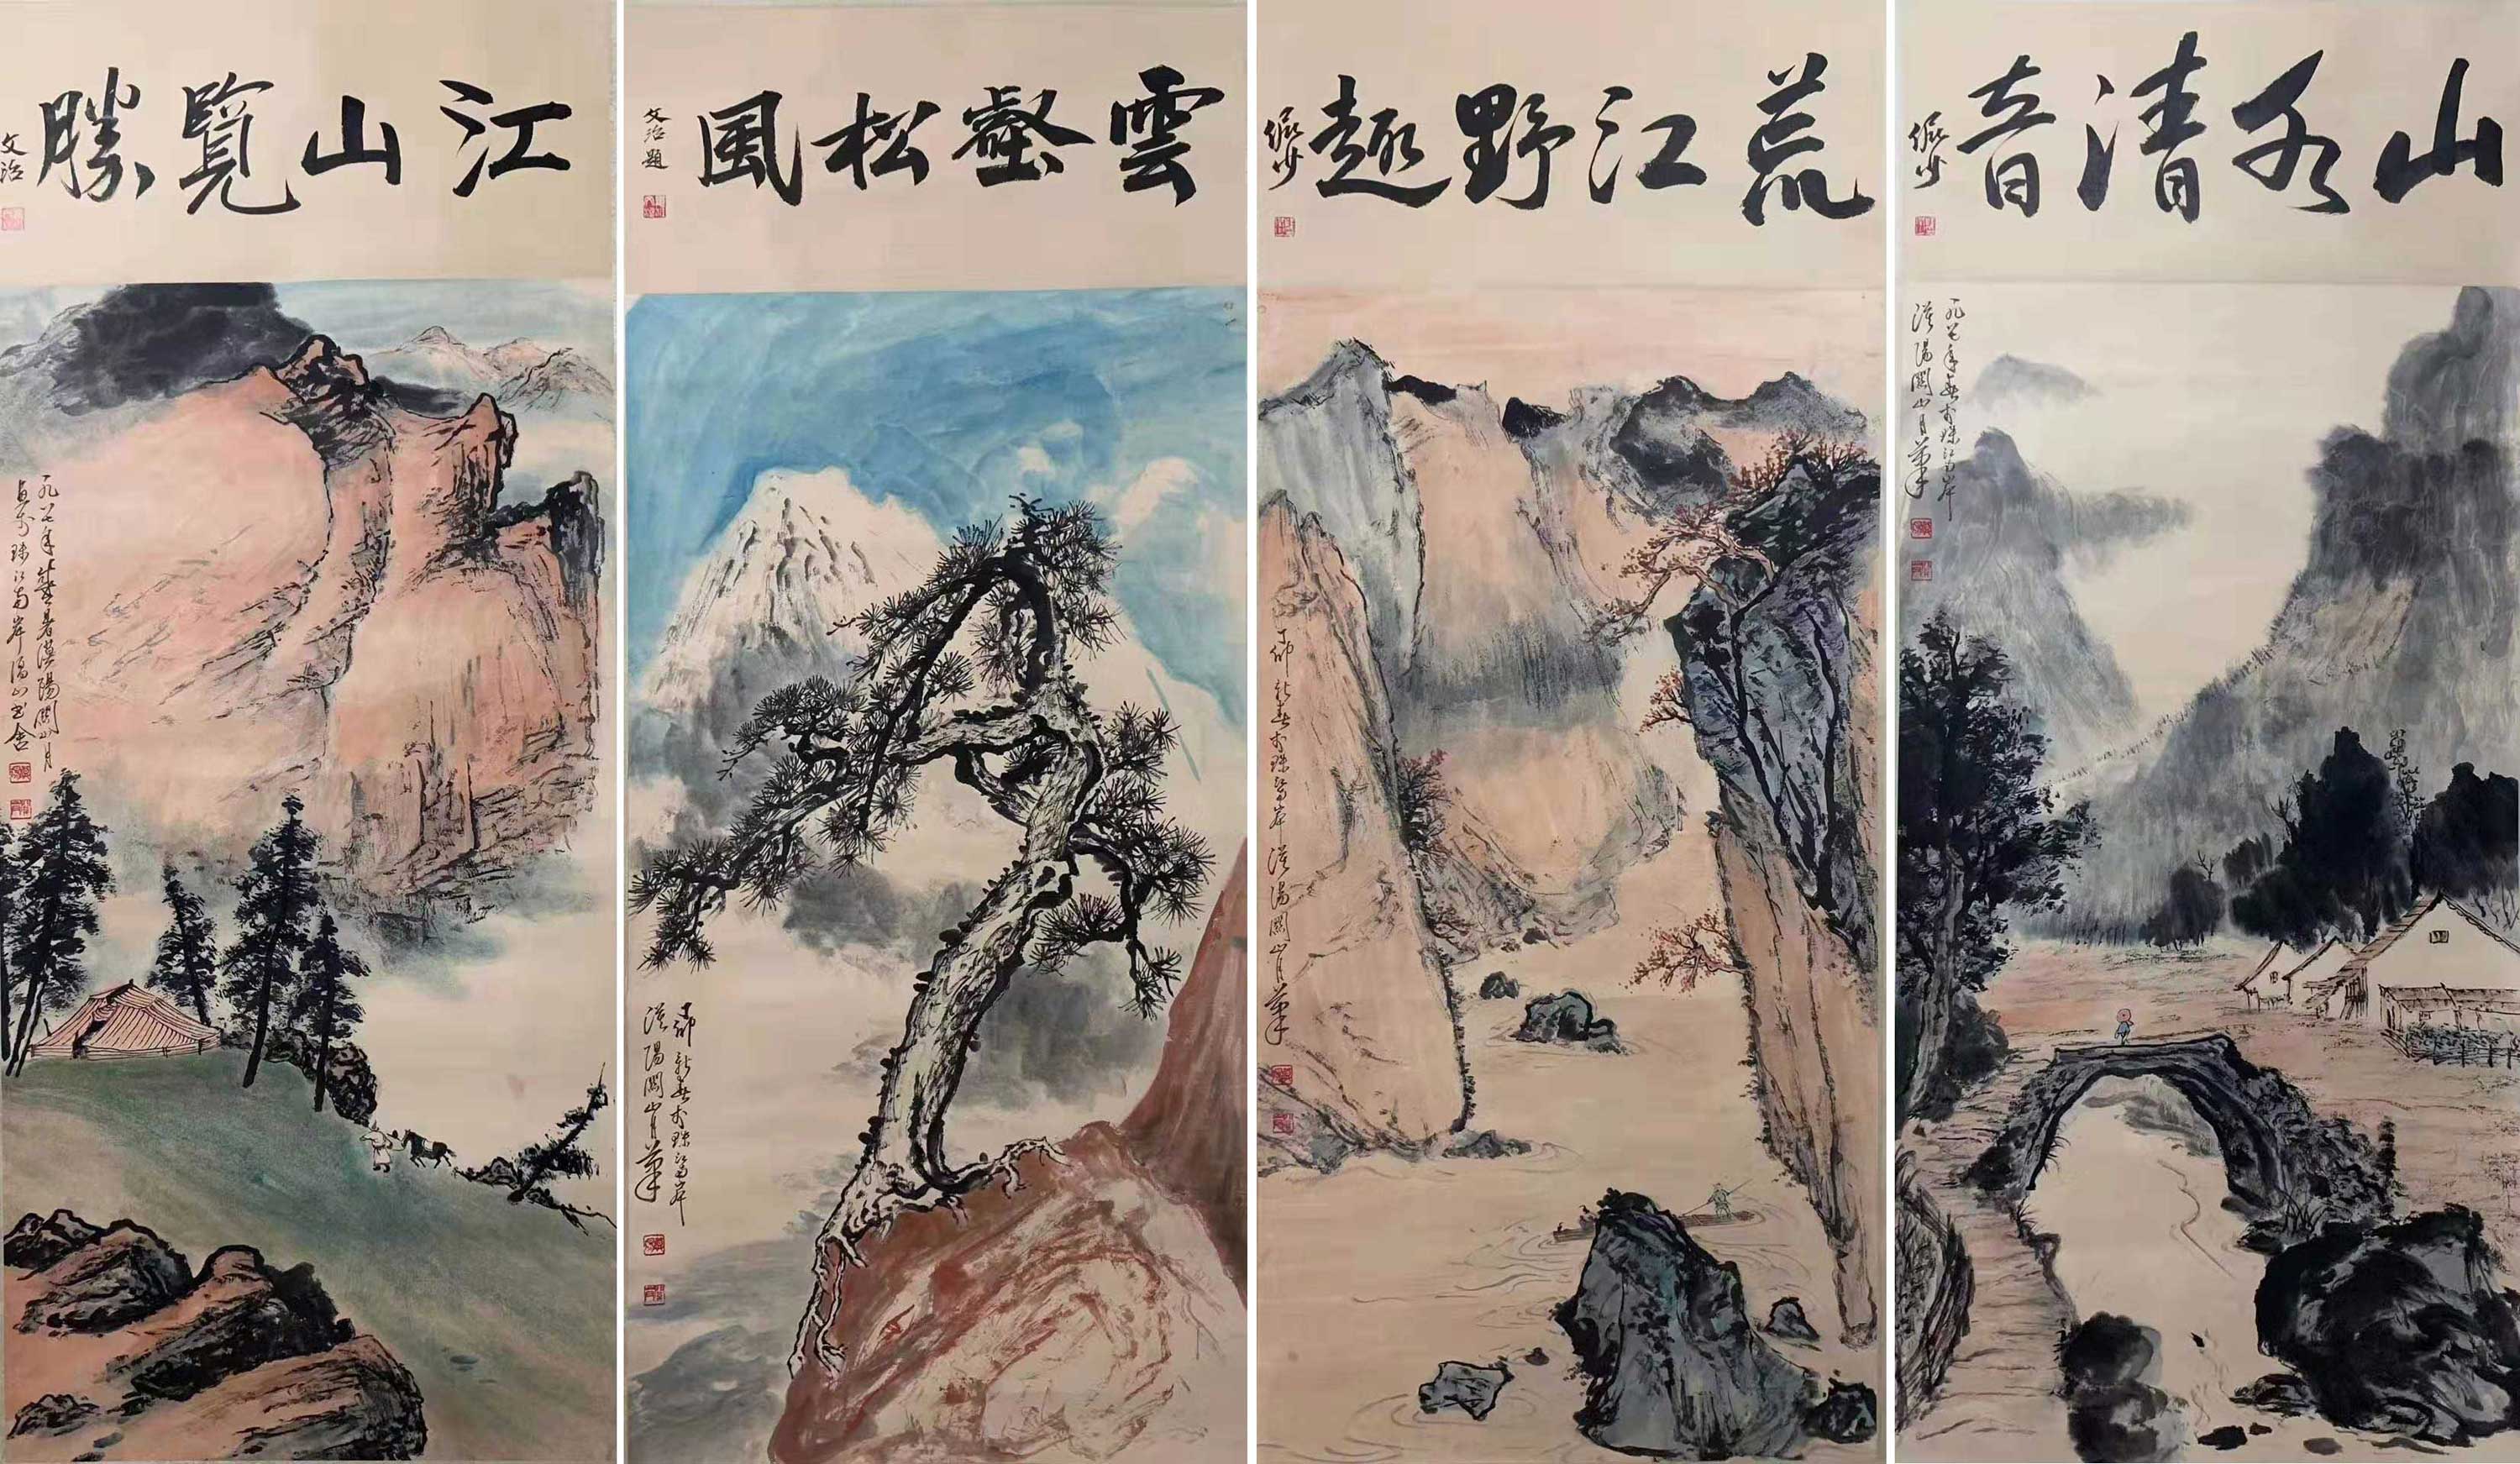 江山覽勝
文治
一九八七年盛暑漢陽關山月
寫於珠江南岸隔山書舍
雲壑松風
文治題
丁卯新春於珠江南岸
漢陽關山月筆
荒江野趣
丁卯新春於珠江南岸漢陽關山月筆
山水清音
一九八七年春於珠江南岸
漢陽關山月筆